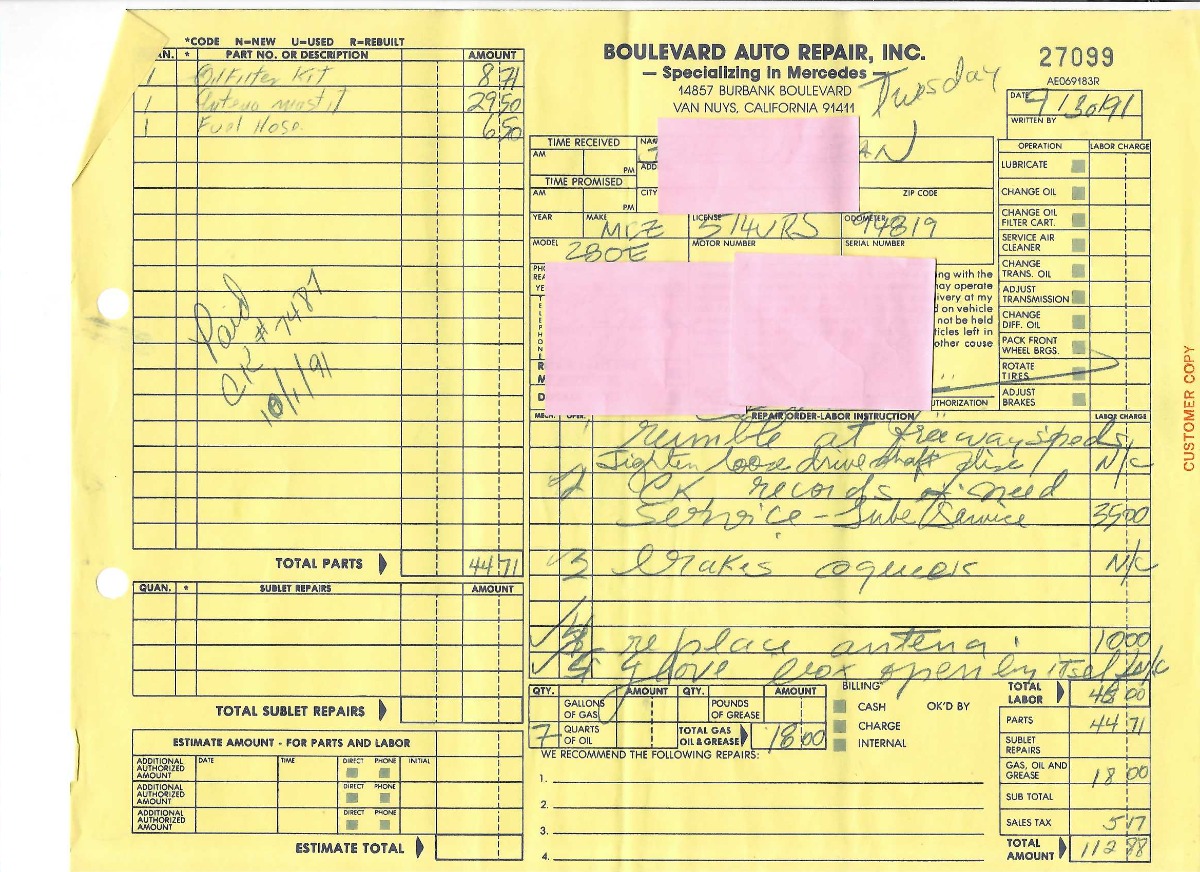 *CODE N=NEW U=USED R=REBUILT
AN. * PART NO. OR DESCRIPTION AMOUNT
1 Oil Filter Kit 8 71
1 Antena mast 29 50
1 Fuel Hose. 6 50
Paid
CK # 7487
10/1/91
TOTAL PARTS 44 71
QUAN. * SUBLET REPAIRS AMOUNT
TOTAL SUBLET REPAIRS
ESTIMATE AMOUNT - FOR PARTS AND LABOR
ADDITIONAL AUTHORIZED AMOUNT DATE TIME DIRECT PHONE INITIAL
ADDITIONAL AUTHORIZED AMOUNT DIRECT PHONE
ADDITIONAL AUTHORIZED AMOUNT DIRECT PHONE
ESTIMATE TOTAL
BOULEVARD AUTO REPAIR, INC.
— Specializing in Mercedes —
14857 BURBANK BOULEVARD
VAN NUYS, CALIFORNIA 91411
Tuesday
27099
AE069183R
DATE 9/30/91
WRITTEN BY
TIME RECEIVED NAM AN
AM PM ADD
TIME PROMISED
AM PM CITY ZIP CODE
YEAR MAKE LICENSE ODOMETER
MCZ 514VRS 94819
MODEL MOTOR NUMBER SERIAL NUMBER
280E
PH
REA
YE
TELEPHONE
R
M
D
ing with the
may operate
ivery at my
d on vehicle
not be held
ticles left in
other cause
UTHORIZATION
OPERATION LABOR CHARGE
LUBRICATE
CHANGE OIL
CHANGE OIL FILTER CART.
SERVICE AIR CLEANER
CHANGE TRANS. OIL
ADJUST TRANSMISSION
CHANGE DIFF. OIL
PACK FRONT WHEEL BRGS.
ROTATE TIRES
ADJUST BRAKES
MECH. OPER. REPAIR ORDER-LABOR INSTRUCTION LABOR CHARGE
1 rumble at freeway speds
Tighten loose driveshaft N/C
2 CK records if need
Service - Lube/Service 35 00
3 brakes squeek N/C
4 replace antena 10 00
5 glove box open by itself N/C
QTY. AMOUNT QTY. AMOUNT
GALLONS OF GAS POUNDS OF GREASE
7 QUARTS OF OIL TOTAL GAS OIL & GREASE 18 00
BILLING
CASH OK'D BY
CHARGE
INTERNAL
WE RECOMMEND THE FOLLOWING REPAIRS:
1.
2.
3.
4.
TOTAL LABOR 45 00
PARTS 44 71
SUBLET REPAIRS
GAS, OIL AND GREASE 18 00
SUB TOTAL
SALES TAX 5 17
TOTAL AMOUNT 112 88
CUSTOMER COPY